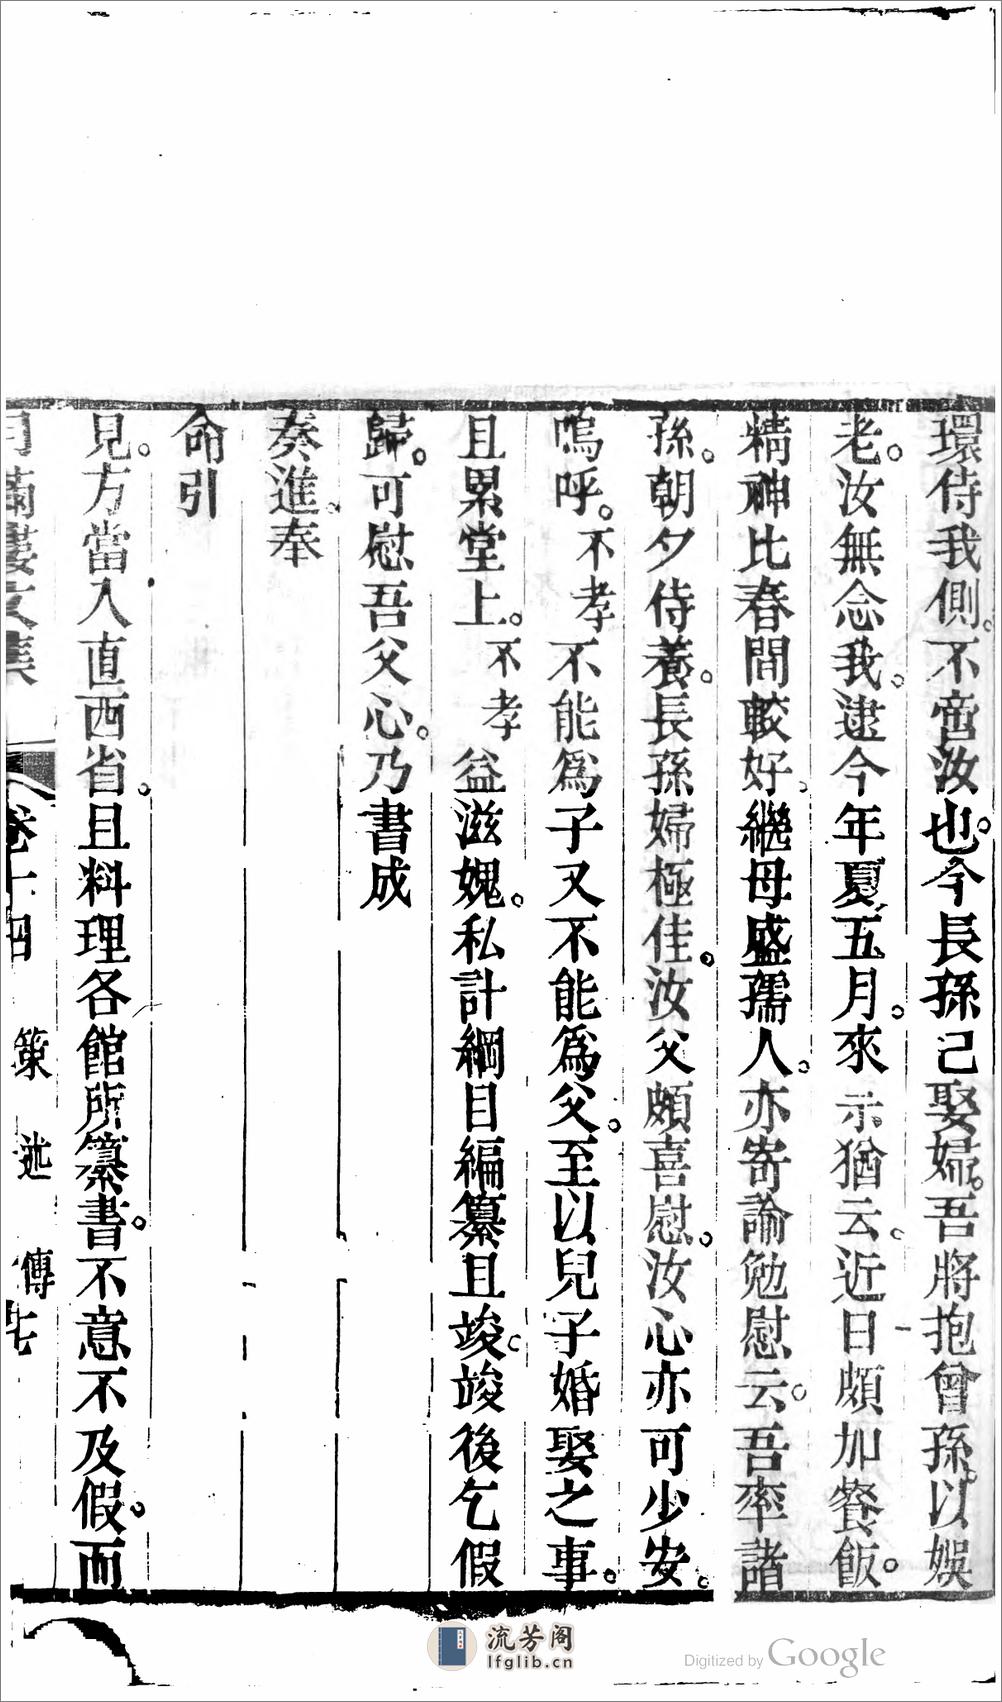 環侍我側。不啻汝也。今長孫已娶婦。吾將抱曾孫。以娛
老。汝無念我。逮今年夏五月。來示猶云。近日頗加餐飯。
精神比春間較好。繼母盛孺人。亦寄諭勉慰云。吾率諸
孫。朝夕侍養。長孫婦極佳。汝父頗喜慰。汝心亦可少安。
嗚呼。不孝不能爲子又不能爲父。至以兒子婚娶之事。
且累堂上。不孝益滋媿。私計綱目編纂且竣。竣後乞假
歸。可慰吾父心。乃書成
奏進。奉
命引
見。方當入直西省。且料理各館所纂書。不意不及假。而
文集
卷十四 策 述 傳
七
流芳阁
lfglib.cn
Digitized by Google